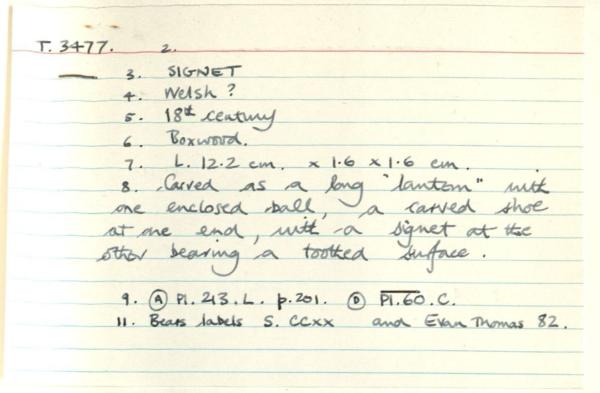 T. 3477. 2.
3. SIGNET
4. Welsh ?
5. 18th century
6. Boxwood.
7. L. 12.2 cm. x 1.6 x 1.6 cm.
8. Carved as a long "lantern" with
one enclosed ball, a carved shoe
at one end, with a signet at the
other bearing a toothed surface.
9. Ⓐ Pl. 213. L. p. 201. Ⓓ Pl. 60. C.
11. Bears labels S. CCXX and Evan Thomas 82.